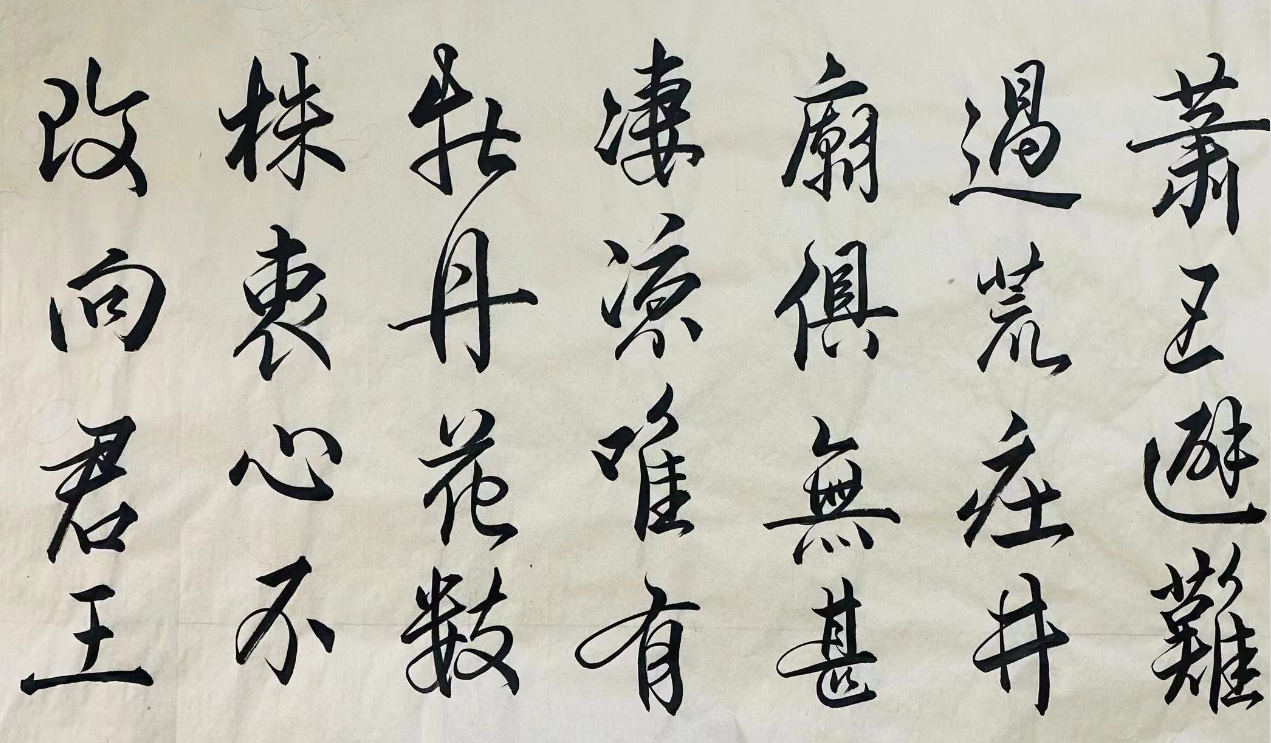 蕭王避難
過荒庄井
廟俱無甚
凄凉唯有
牡丹花數
株衷心不
改向君王